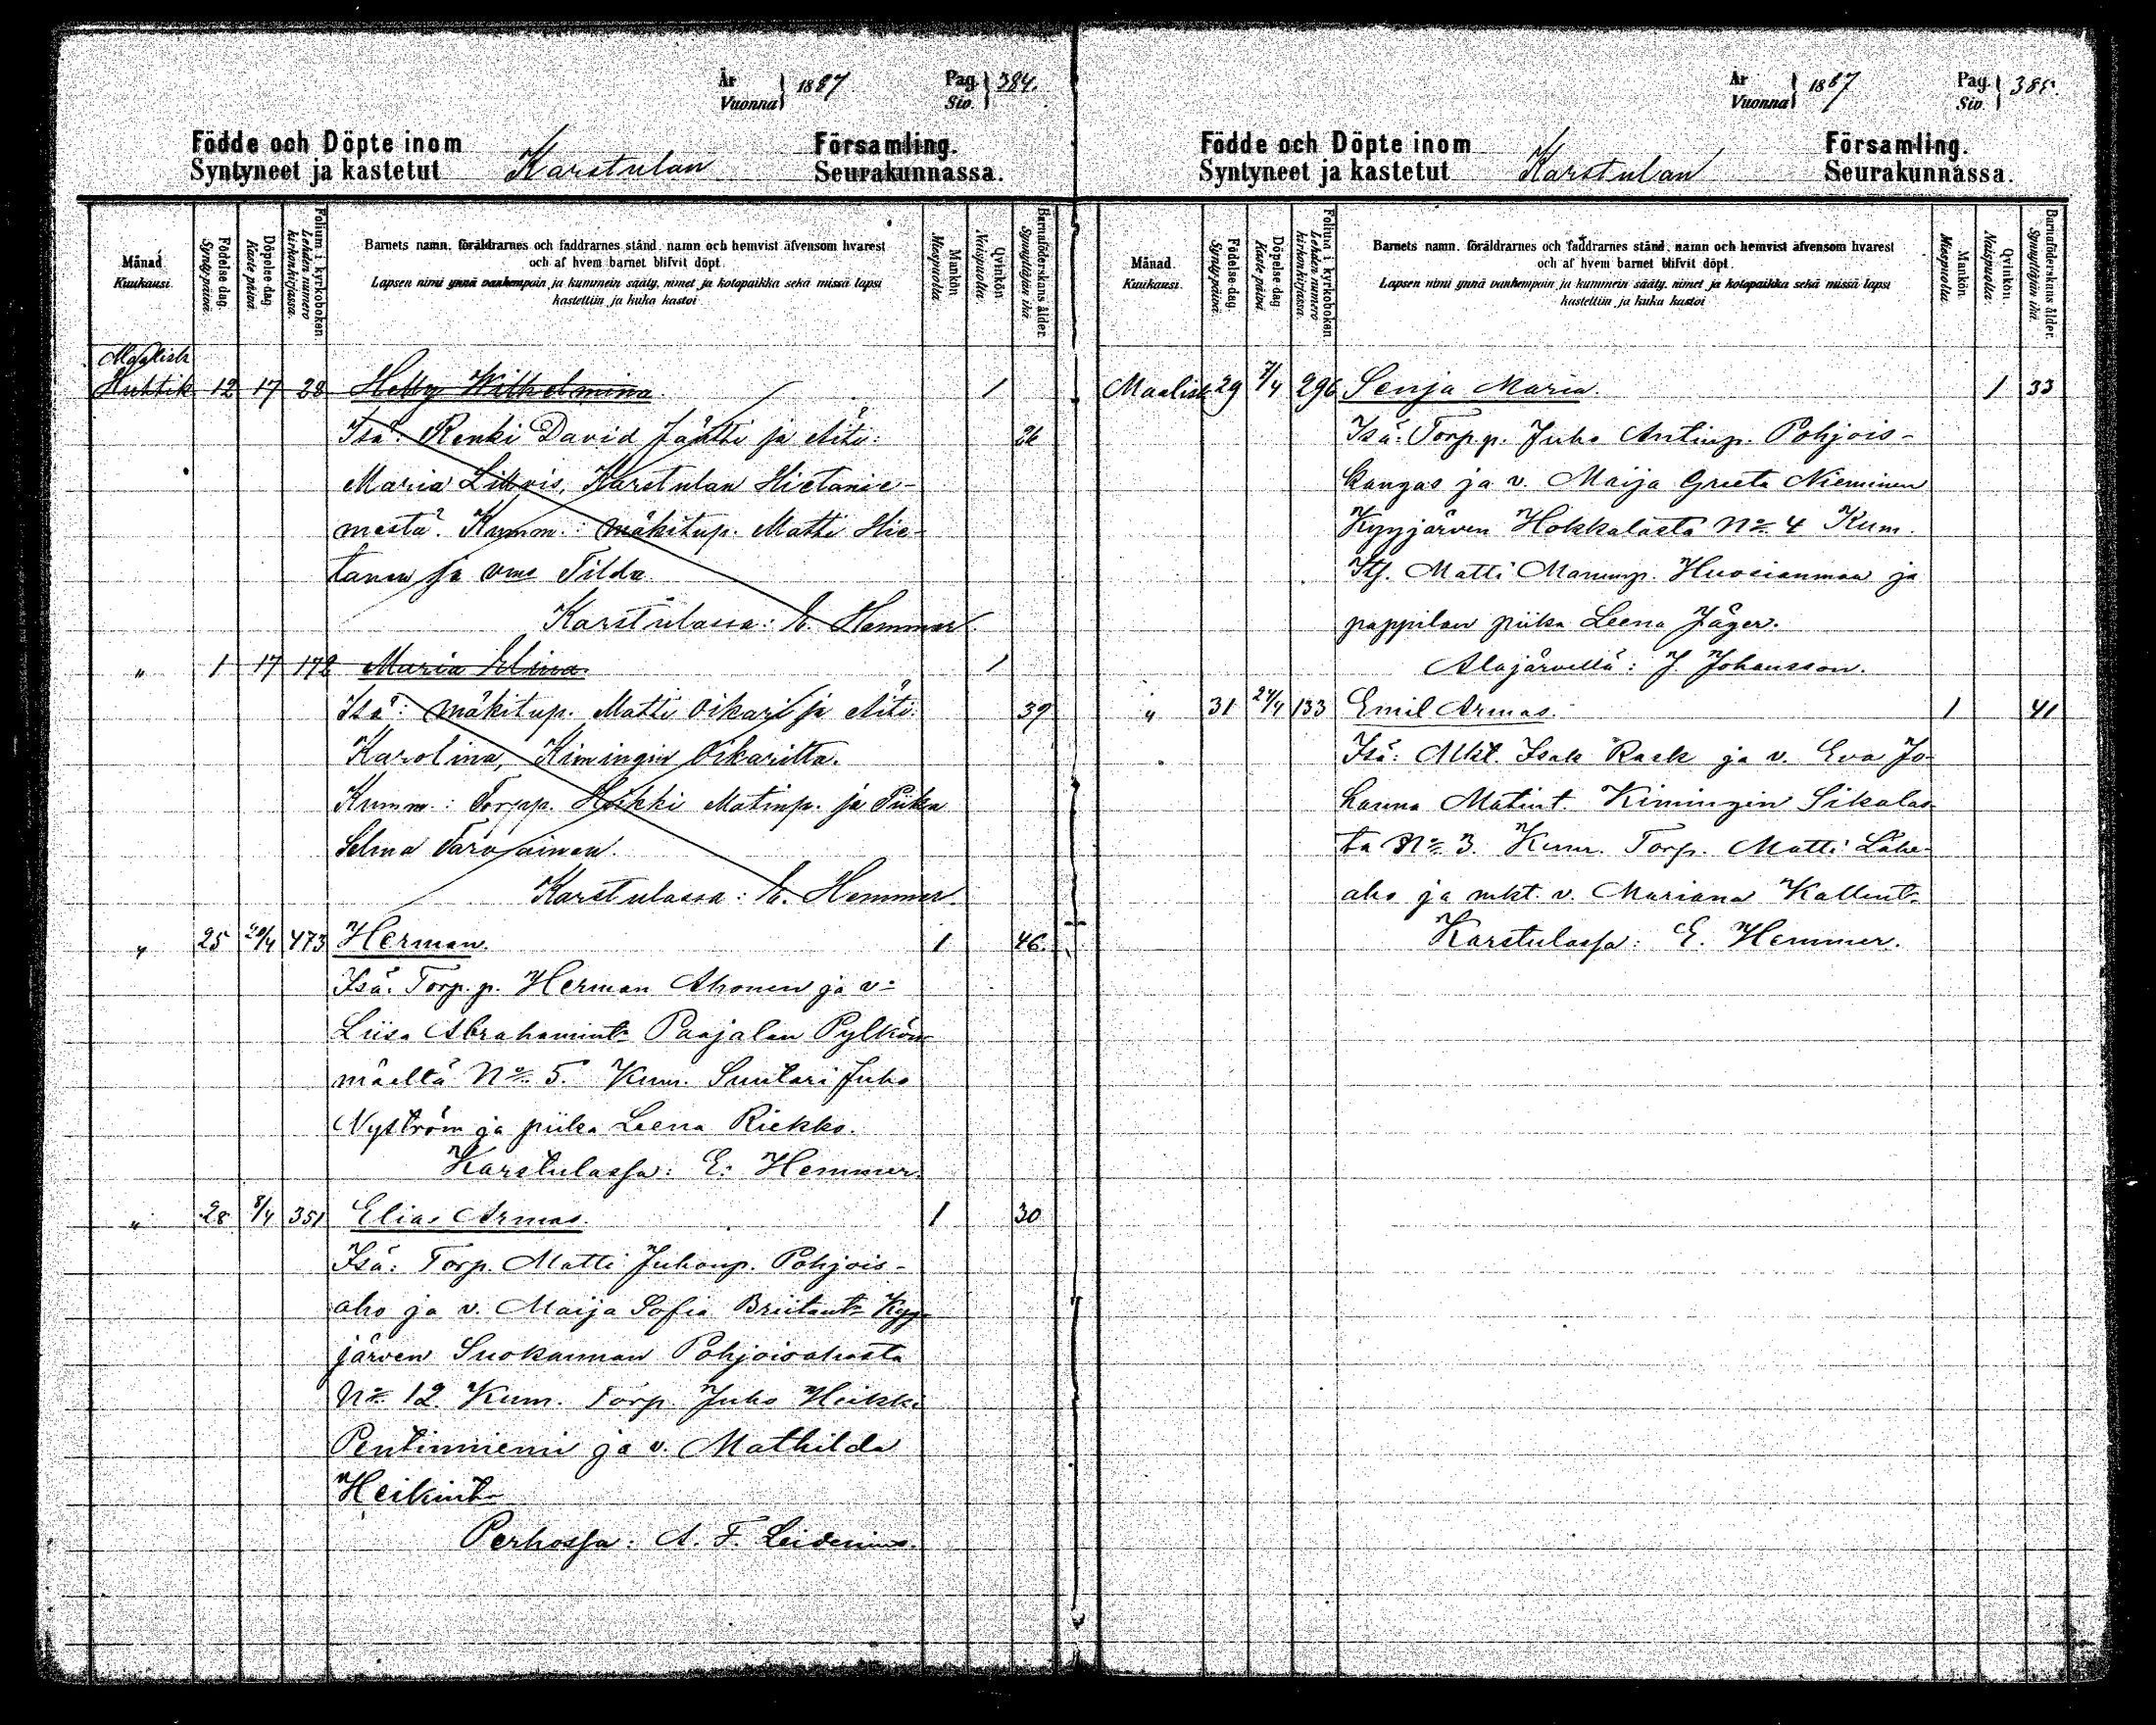 År
Vuonna } 1887 Pag.
Siv. } 384.
Födde och Döpte inom
Syntyneet ja kastetut Karstulan Församling.
Seurakunnassa.
Månad.
Kuukausi.
Födelse dag.
Syntypäivä.
Döpelse dag.
Kaste päivä.
Folium i kyrkoboken.
Lehden numero kirkonkirjassa.
Barnets namn, föräldrarnes och faddrarnes stånd, namn och hemvist äfvensom hvarest
och af hvem barnet blifvit döpt.
Lapsen nimi ynnä vanhempain ja kummein sääty, nimet ja kotopaikka sekä missä lapsi
kastettiin ja kuka kastoi.
Mankön.
Miespuolta.
Qvinkön.
Naispuolta.
Barnaföderskans ålder.
Synnyttäjän ikä.
Maalisk
Huhtik 12 17 28 Helly Wilhelmina. 1
Isä: Renki David Jäntti ja Äiti: 26
Maria, Karstulan Hietanie-
mestä. Kumm.: mäkitup. Matti Hie-
tanen ja vmo Tilda
Karstulassa: E. Hemmer.
" 1 17 172 Maria Elina. 1
Isä: mäkitup. Matti Oikari ja Äiti: 39
Karolina, Kimingin Oikarilta.
Kumm.: Torpp. Heikki Matinp. ja Piika
Selma Tarvainen.
Karstulassa: E. Hemmer.
" 25 20/4 473 Herman. 1 46.
Isä: Torp.p. Herman Ahonen ja v:
Liisa Abrahamint. Paajalan Pylkön-
mäeltä No 5. Kum. Suutari Juho
Nyström ja piika Leena Riekko.
Karstulassa: E. Hemmer.
" 28 8/4 351 Elias Armas. 1 30
Isä: Torp. Matti Juhonp. Pohjois-
aho ja v. Maija Sofia Briitant. Kyy-
järven Suokannan Pohjoisahosta
No 12. Kum. Torp. Juho Heikki
Pentinniemi ja v. Mathilda
Heikint.
Perhossa: A. F. Leidenius.
År
Vuonna } 1887 Pag.
Siv. } 385.
Födde och Döpte inom
Syntyneet ja kastetut Karstulan Församling.
Seurakunnassa.
Månad.
Kuukausi.
Födelse-dag.
Syntypäivä.
Döpelse dag.
Kaste päivä.
Folium i kyrkoboken.
Lehden numero kirkonkirjassa.
Barnets namn, föräldrarnes och faddrarnes stånd, namn och hemvist äfvensom hvarest
och af hvem barnet blifvit döpt.
Lapsen nimi ynnä vanhempain ja kummein sääty, nimet ja kotopaikka sekä missä lapsi
kastettiin ja kuka kastoi.
Mankön.
Miespuolta.
Qvinkön.
Naispuolta.
Barnaföderskans ålder.
Synnyttäjän ikä.
Maalisk 29 7/4 296 Senja Maria. 1 33
Isä: Torp.p. Juho Antinp. Pohjois-
kangas ja v. Maija Greeta Nieminen
Kyyjärven Hokkalasta No 4 Kum.
Its. Matti Manunp. Huosianmaa ja
pappilan piika Leena Jäger.
Alajärvellä: J. Johansson.
" 31 24/4 133 Emil Armas. 1 41
Isä: Mkt. Isak Rask ja v. Eva Jo-
hanna Matint. Kimingin Sikalas-
ta No 3. Kum. Torp. Matti Lähe-
aho ja mkt. v. Mariana Kallent.
Karstulassa: E. Hemmer.